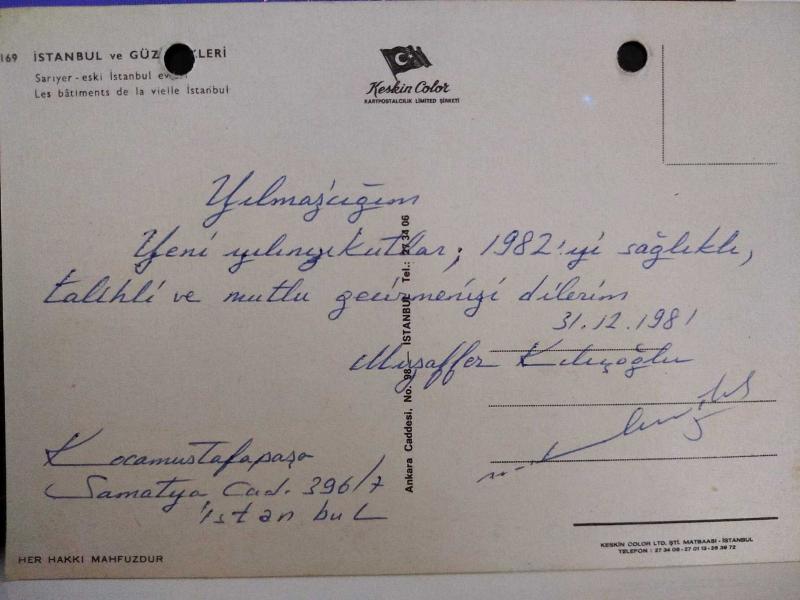 169 İSTANBUL ve GÜZ LKLERİ
Sarıyer - eski İstanbul evleri
Les bâtiments de la vielle İstanbul
Keskin Color
KARTPOSTALCILIK LIMITED ŞİRKETİ
Yılmaz'cığım
Yeni yılınızı kutlar; 1982'yi sağlıklı,
talihli ve mutlu geçirmenizi dilerim
31.12.1981
Muzaffer Kılıçoğlu
Kocamustafapaşa
Samatya Cad. 396/7
istanbul
Ankara Caddesi, No: 98 — İSTANBUL Tel.: 27 34 06
HER HAKKI MAHFUZDUR
KESKİN COLOR LTD. ŞTİ. MATBAASI - İSTANBUL
TELEFON : 27 34 06 - 27 01 13 - 26 39 72